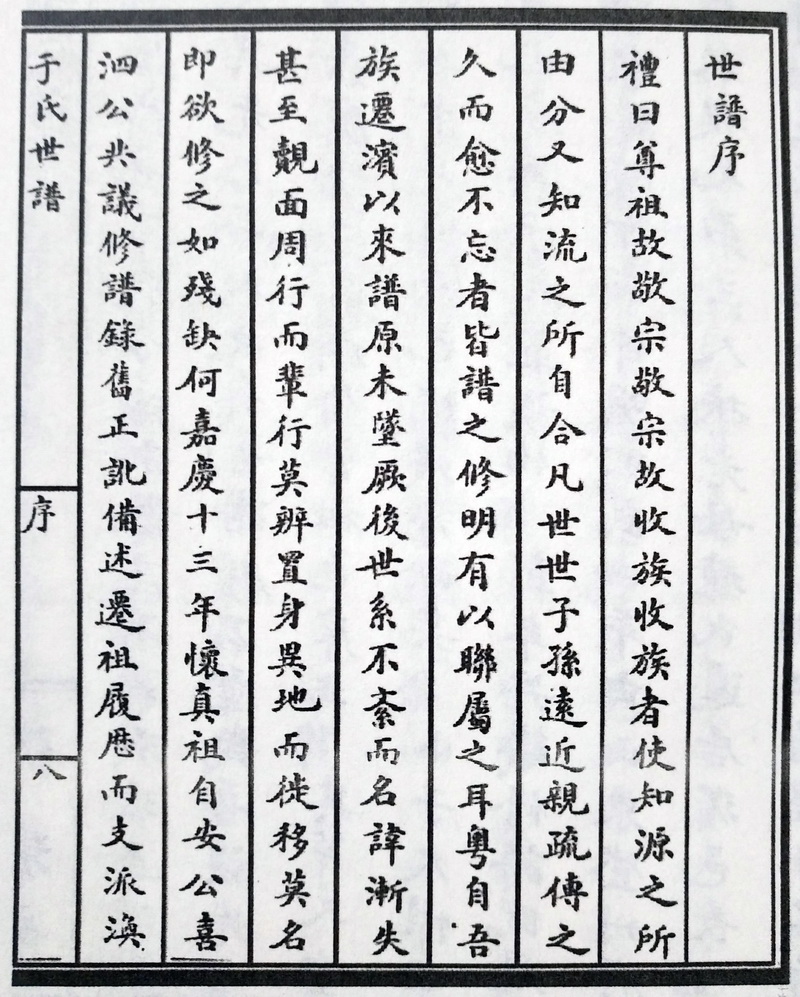 世譜序
禮曰尊祖故敬宗敬宗故收族收族者使知源之所
由分又知流之所自合凡世世子孫遠近親疏傳之
久而愈不忘者皆譜之修明有以聯屬之耳粤自吾
族遷濱以來譜原未墜厥後世系不紊而名諱漸失
甚至覿面周行而輩行莫辨置身異地而徙移莫名
即欲修之如殘缺何嘉慶十三年懷真祖自安公喜
泗公共議修譜錄舊正訛備述遷祖履歷而支派渙
于氏世譜
序
八